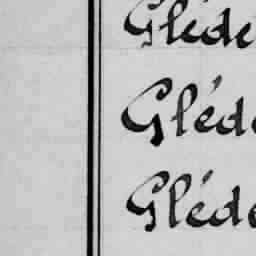 Gléde
Gléde
Gléde